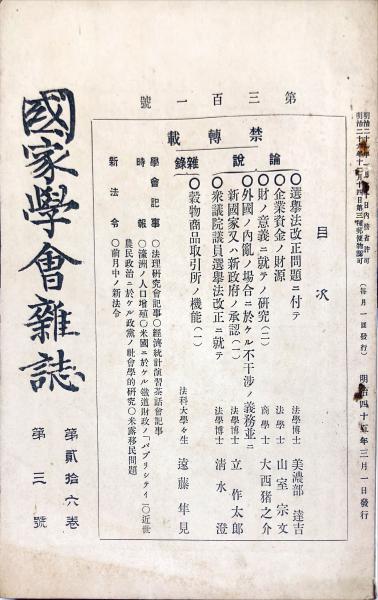 明治四十五年三月一日發行
(每月一回發行)
第三百一號
禁轉載
目次
論說
○選擧法改正問題ニ付テ 法學博士 美濃部達吉
○企業資金ノ財源 法學士 山室宗文
○財ノ意義ニ就テノ研究(二) 商學士 大西猪之介
○外國ノ內亂ノ場合ニ於ケル不干涉ノ義務並ニ
新國家又ハ新政府ノ承認(一) 法學博士 立作太郎
○衆議院議員選擧法改正ニ就テ 法學博士 清水澄
雜錄
○穀物商品取引所ノ機能(一) 法科大學々生 遠藤隼見
學會記事 ○法理硏究會記事○經濟統計演習茶話會記事
時報 ○濠洲ノ人口增殖○米國ニ於ケル鐵道財政ノ「パブリシティ」○近世
農民政治ニ於ケル政黨ノ社會學的硏究○米露移民問題
新法令 ○前月中ノ新法令
國家學會雜誌
第貳拾六卷
第三號